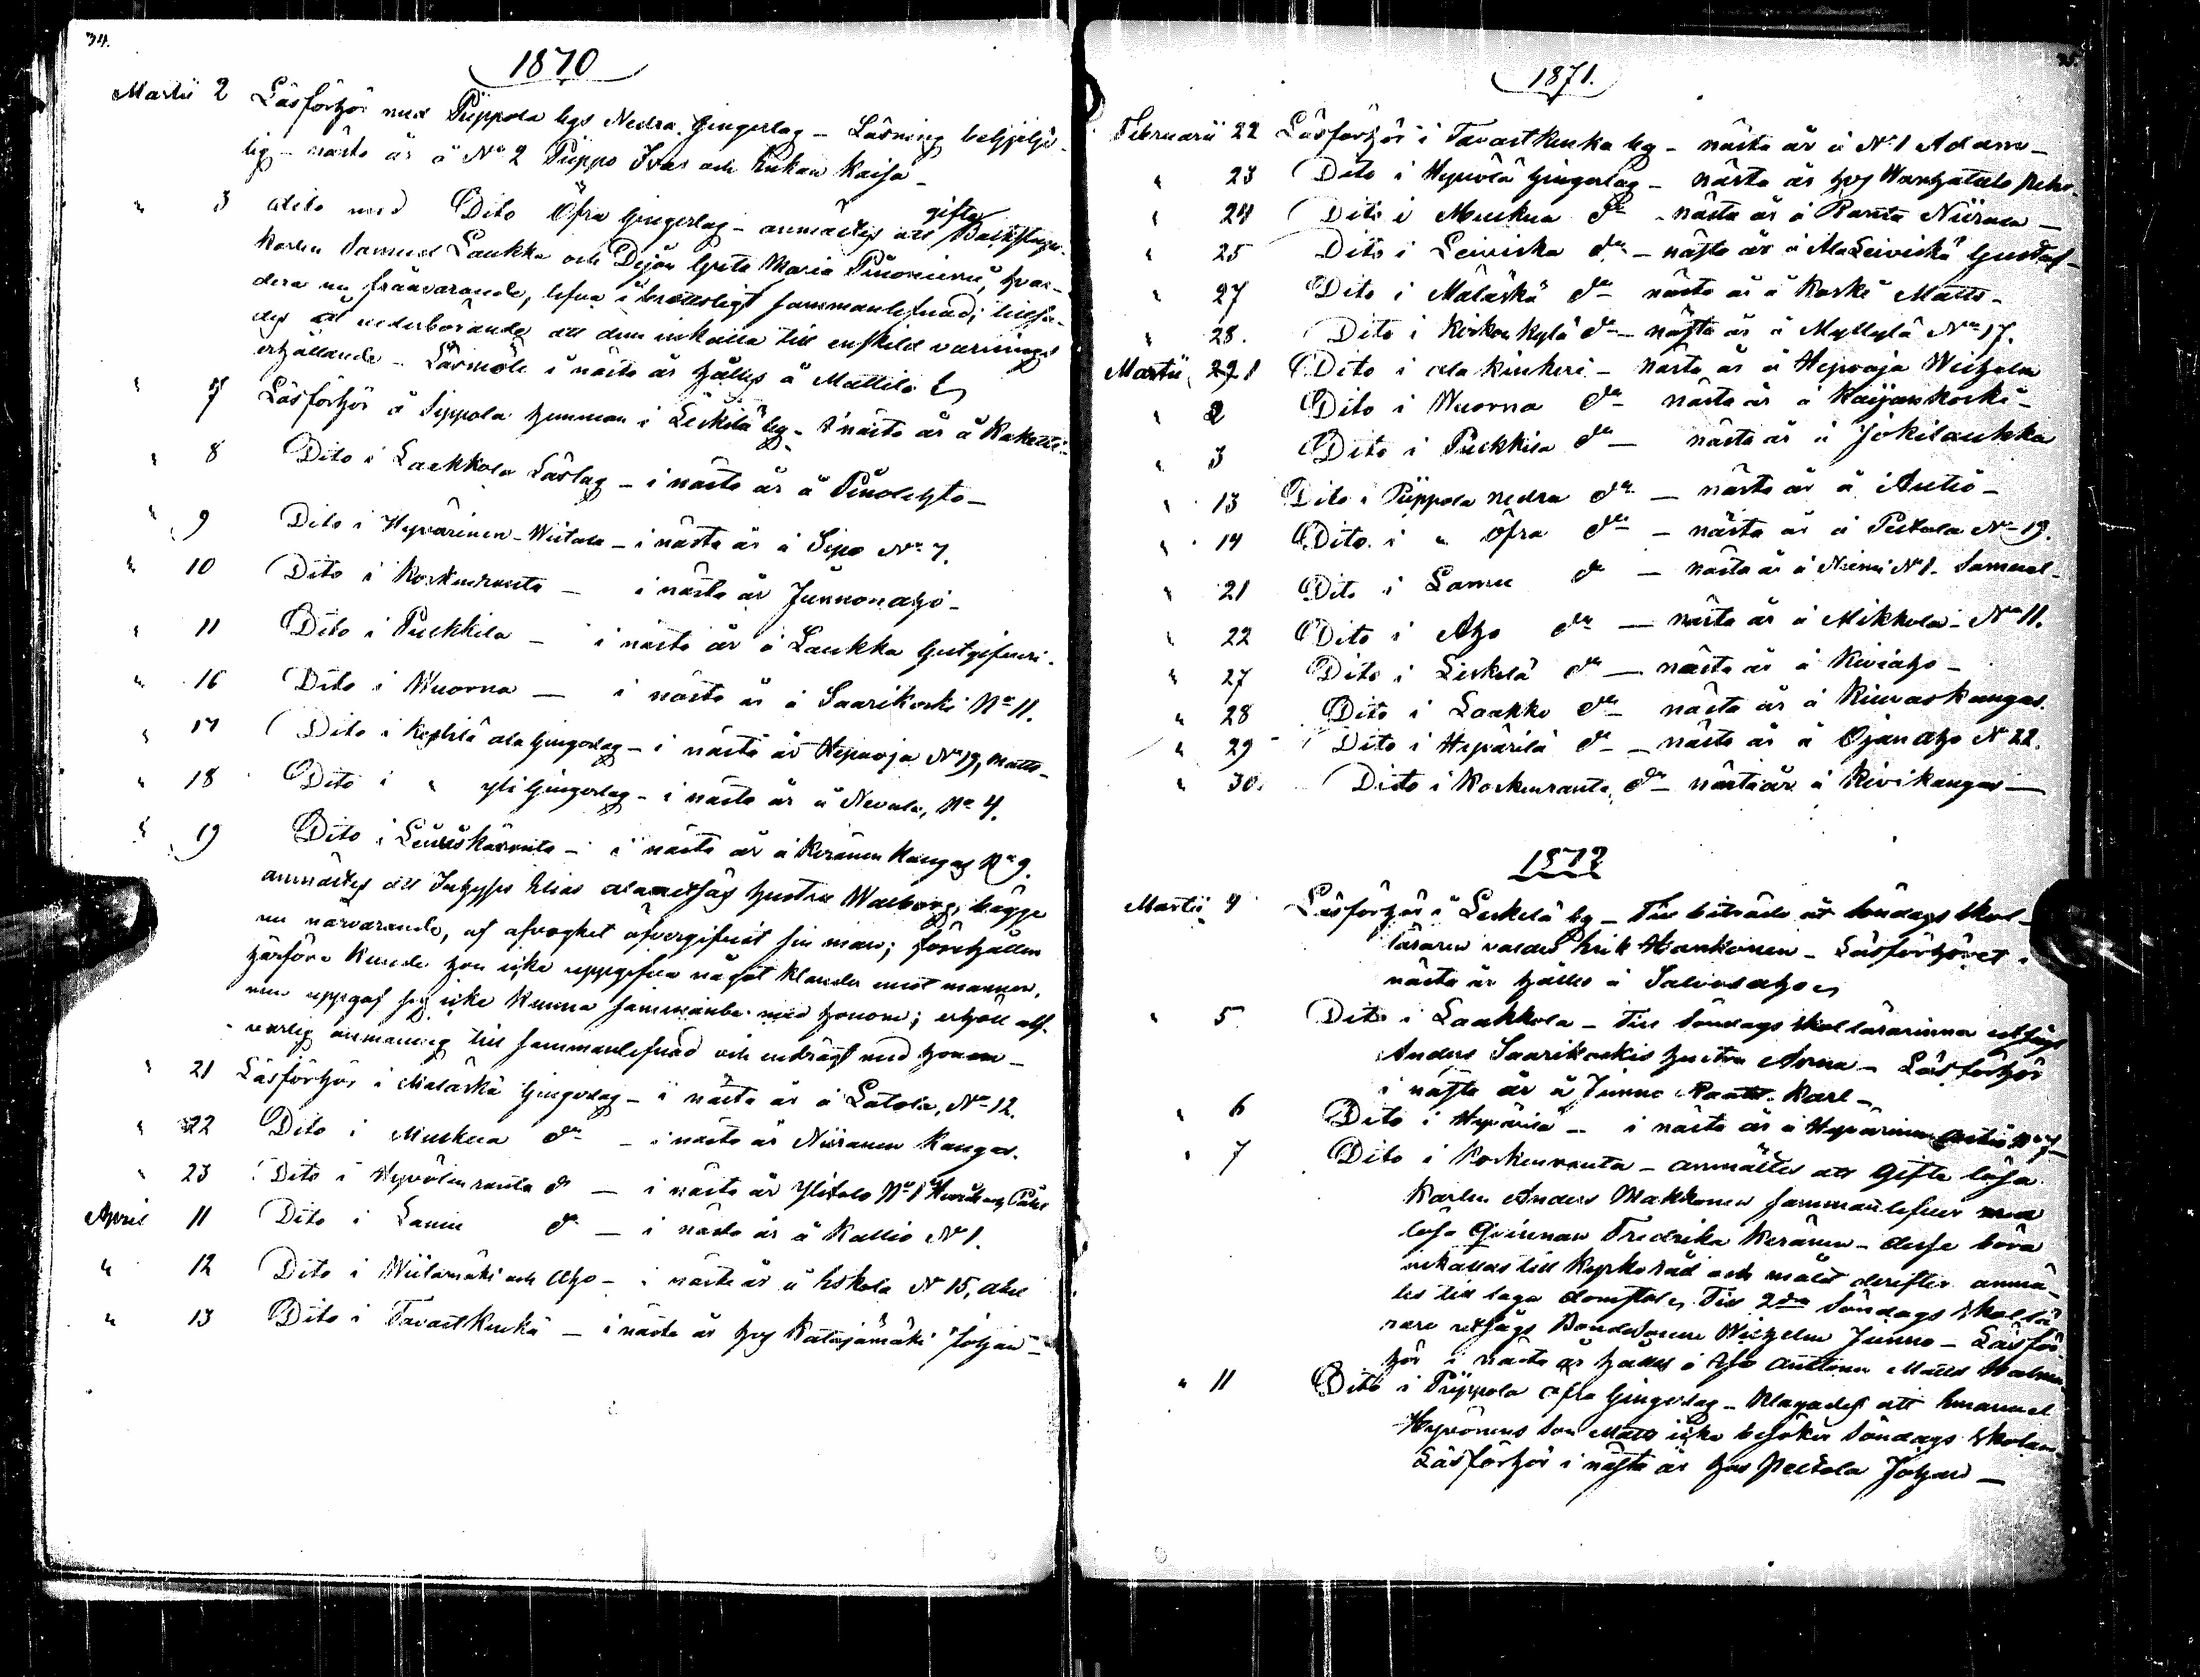 34.
1870
Martii 2 Läsförhör med Piippola bys Nedra Gingerlag - Läsning behjelp-
lig - nästa år å No 2 Piippo Ivar och Kukan Kaisa -
" 3 dito med Dito Öfra Gingerlag - anmältes att gifta Backstugu-
karlen Samuel Laukka och Pigan Greta Maria Pinoniemi, hvar-
dera nu frånvarande, lefva i brottsligt sammanlefnad; tillsa-
des at vederbörande att dem inkalla till enskild varnings
erhållande - Läsmöte i nästa år hålles å Mattila
" 7 Läsförhör å Sippola hemman i Leskelä by - i nästa år å
" 8 Dito i Laakkola Läslag - i nästa år å Pinolehto -
" 9 Dito i Hyvärinen-Wiitala - i nästa år å Sipo No 7.
" 10 Dito i Koskenranta - i nästa år Junnonaho -
" 11 Dito i Pulkkila - i nästa år å Laukka Gästgifveri.
" 16 Dito i Wuorna - i nästa år å Saarikoski No 11.
" 17 Dito i Kestilä ala Gingerlag - i nästa år Heponoja No 19, Matts -
" 18 Dito i " yli Gingerlag - i nästa år å Nevala, No 4.
" 19 Dito i Leiviskäranta - i nästa år å Keränen Kangas No 9.
anmältes att Inhyses Elias hustru Walborg, bägge
nu närvarande, af afvoghet öfvergifvit sin man; förehållen
härföre kunde hon icke uppgifva något klander emot mannen,
men uppgaf sig icke kunna sammanbo med honom; erhöll all-
varlig anmaning till sammanlefnad och endrägt med honom -
" 21 Läsförhör i Mäläskä Gingerlag - i nästa år å Latola, No 12.
" 22 Dito i Mulkua do - i nästa år Niiranen Kangas.
" 23 Dito i Hyvölänranta do - i nästa år Ylitalo No 1
April 11 Dito i Lamu do - i nästa år å Kallio No 1.
" 12 Dito i Wiitamäki och Aho - i nästa år å Eskola No 15, Abel
" 13 Dito i Tavastkenkä - i nästa år hos Katajamäki Johan -
35.
1871.
Februarii 22 Läsförhör i Tavastkenka by - nästa år å No 1 Adam -
" 23 Dito i Hyvölä Gingerlag - nästa år hos Wanhatalo Petter
" 24 Dito i Mulkua do - nästa år å Ranta Niirala -
" 25 Dito i Leiviska do - nästa år å AlaLeiviskä Gustaf -
" 27 Dito i Mäläskä do nästa år å Koski Matts -
" 28. Dito i Kirkonkylä do - nästa år å Myllylä No 17.
Martii 1 Dito i ala - nästa år å Heponoja
" 2 Dito i Wuorna do nästa år å Kaijankoski -
" 3 Dito i Pulkkila do - nästa år å Jokilaukka
" 13 Dito i Piippola nedra do - nästa år å Autio -
" 14 Dito i " Öfra do - nästa år å Peltola No 19.
" 21 Dito i Lamu do - nästa år å Niemi No 1. Samuel -
" 22 Dito i Aho do - nästa år å Mikkola - No 11.
" 27 Dito i Leskelä do - nästa år å Kiviaho -
" 28 Dito i Laakko do - nästa år å Kinnaskangas.
" 29 Dito i Hyvärilä do - nästa år å Ojan aho No 22.
" 30. Dito i Koskenranta do - nästa år å Kivikangas -
1872
Martii 4 Läsförhör i Leskelä by - Till biträde åt Söndags skol-
läraren valdes Erik Hankonen - Läsförhöret i
nästa år hålles å Salvosaho
" 5 Dito i Laakkola - Till Söndags skollärarinna utsågs
Anders Saarikoskis hustru Anna - Läsförhör
i nästa år å Junno Karl -
" 6 Dito i Hyvärilä - i nästa år å Hyvärinen Autio No 7 -
" 7 Dito i Koskenranta - anmältes att Gifte lösa
Karlen Anders Makkonen sammanlefver med
lösa Qvinnan Fredrika Keränen - desse böra
inkallas till Kyrkoråd och målet derefter anmä-
les till laga domstol. Till 2dra Söndags skollä-
rare utsågs Bondesonen Wilhelm Junno - Läsför-
hör i nästa år hålles å Anttonen Matts
" 11 Dito i Piippola öfra Gingerlag - Klagades att Emanuel
Hyvönens Son Matts icke besöker Söndags skolan
Läsförhör i nästa år hos Peltola Johan -